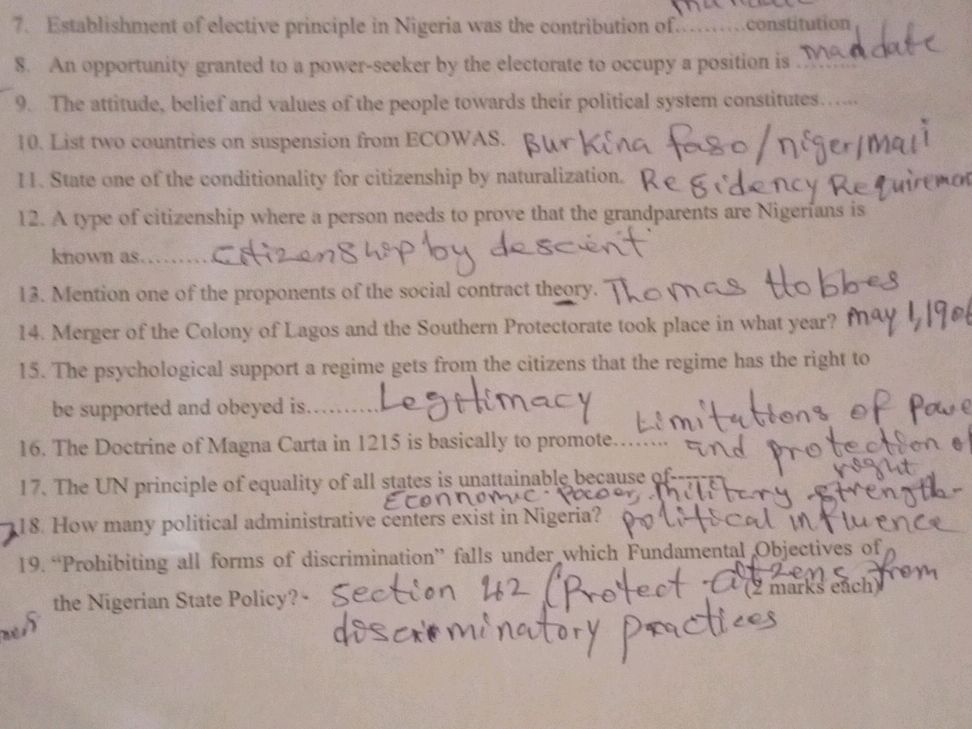 7. Establishment of elective principle in Nigeria was the contribution of..........constitution
8. An opportunity granted to a power-seeker by the electorate to occupy a position is .......... mandate
9. The attitude, belief and values of the people towards their political system constitutes......
10. List two countries on suspension from ECOWAS. Burkina faso/niger/mali
11. State one of the conditionality for citizenship by naturalization. Residency Requiremen
12. A type of citizenship where a person needs to prove that the grandparents are Nigerians is
known as......... citizenship by descent
13. Mention one of the proponents of the social contract theory. Thomas Hobbes
14. Merger of the Colony of Lagos and the Southern Protectorate took place in what year? may 1, 1906
15. The psychological support a regime gets from the citizens that the regime has the right to
be supported and obeyed is.......... Legitimacy
Limitations of Powe
16. The Doctrine of Magna Carta in 1215 is basically to promote........ and protection of
right
17. The UN principle of equality of all states is unattainable because of-------
Econnomic Power, military strength
18. How many political administrative centers exist in Nigeria? political influence
19. “Prohibiting all forms of discrimination” falls under which Fundamental Objectives of
the Nigerian State Policy?- section 42 (Protect citizens from
(2 marks each)
discriminatory practices